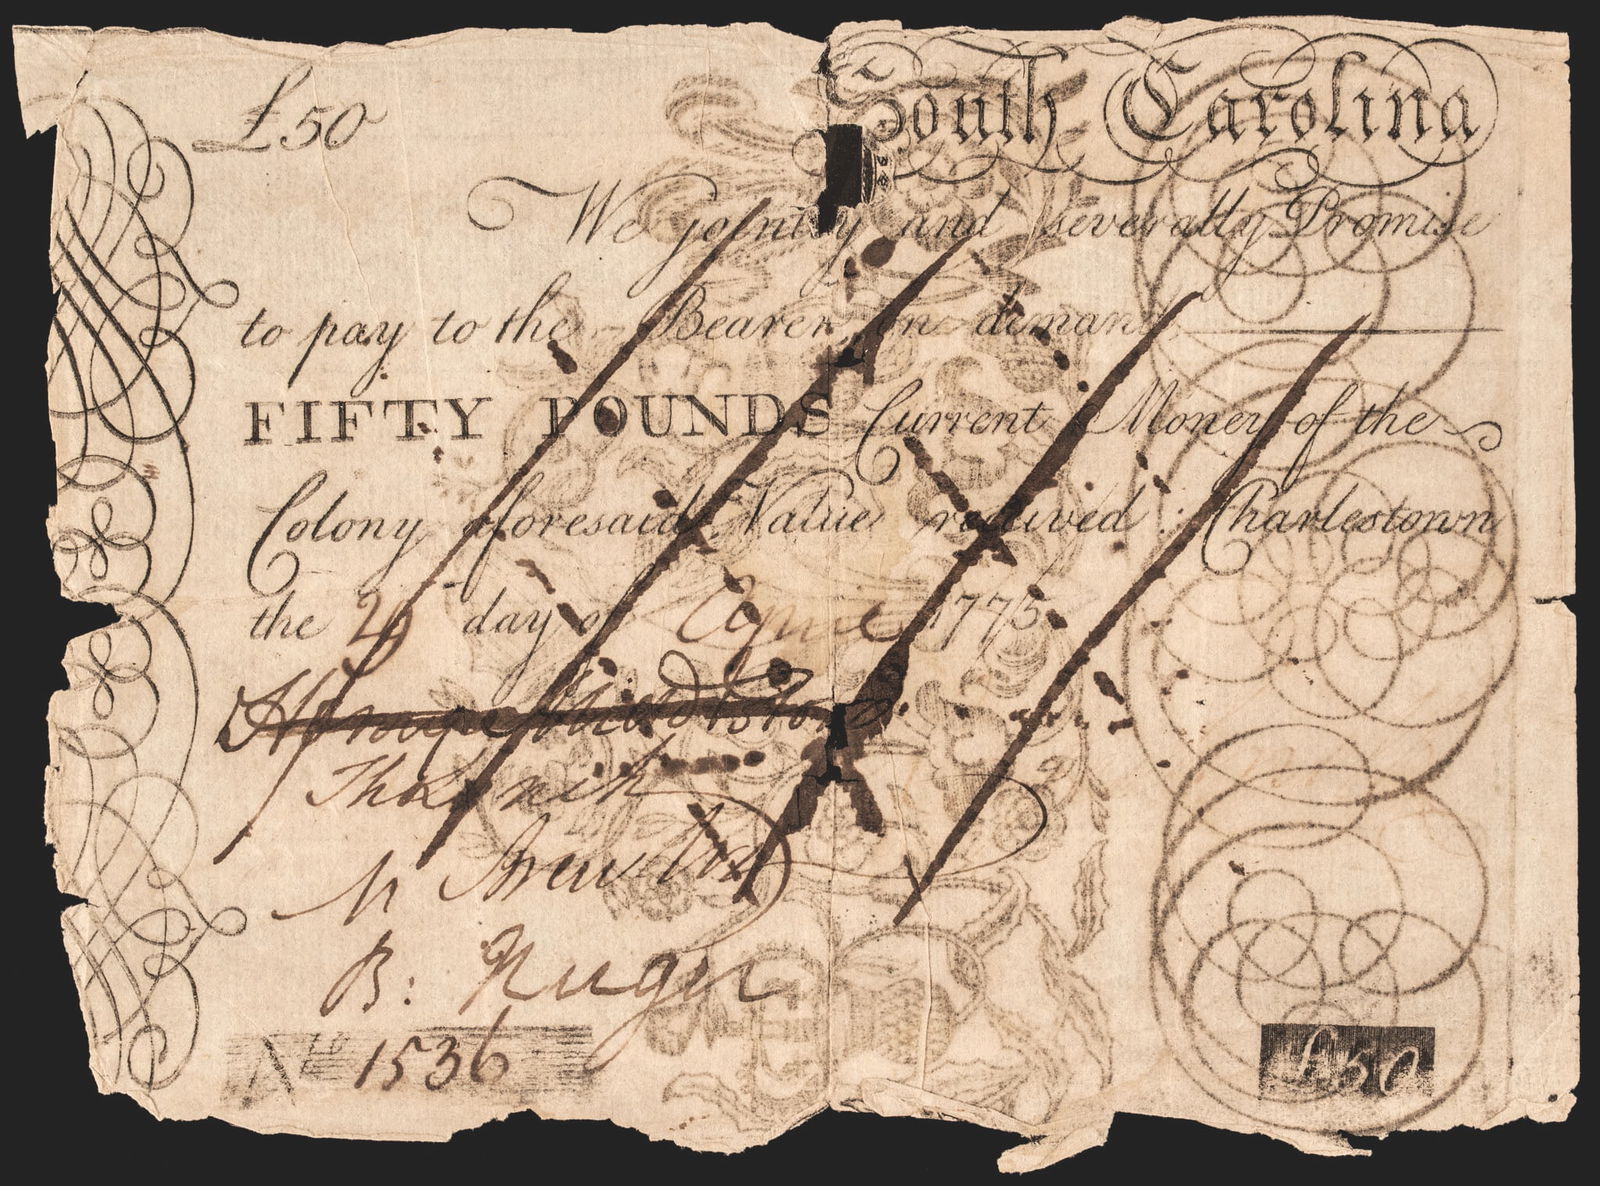 £50
South Carolina
We jointly and severally Promise
to pay to the Bearer on demand
FIFTY POUNDS Current Money of the
Colony aforesaid Value received : Charlestown
the 2 day of 1775
B: Huger
No 1536
£50